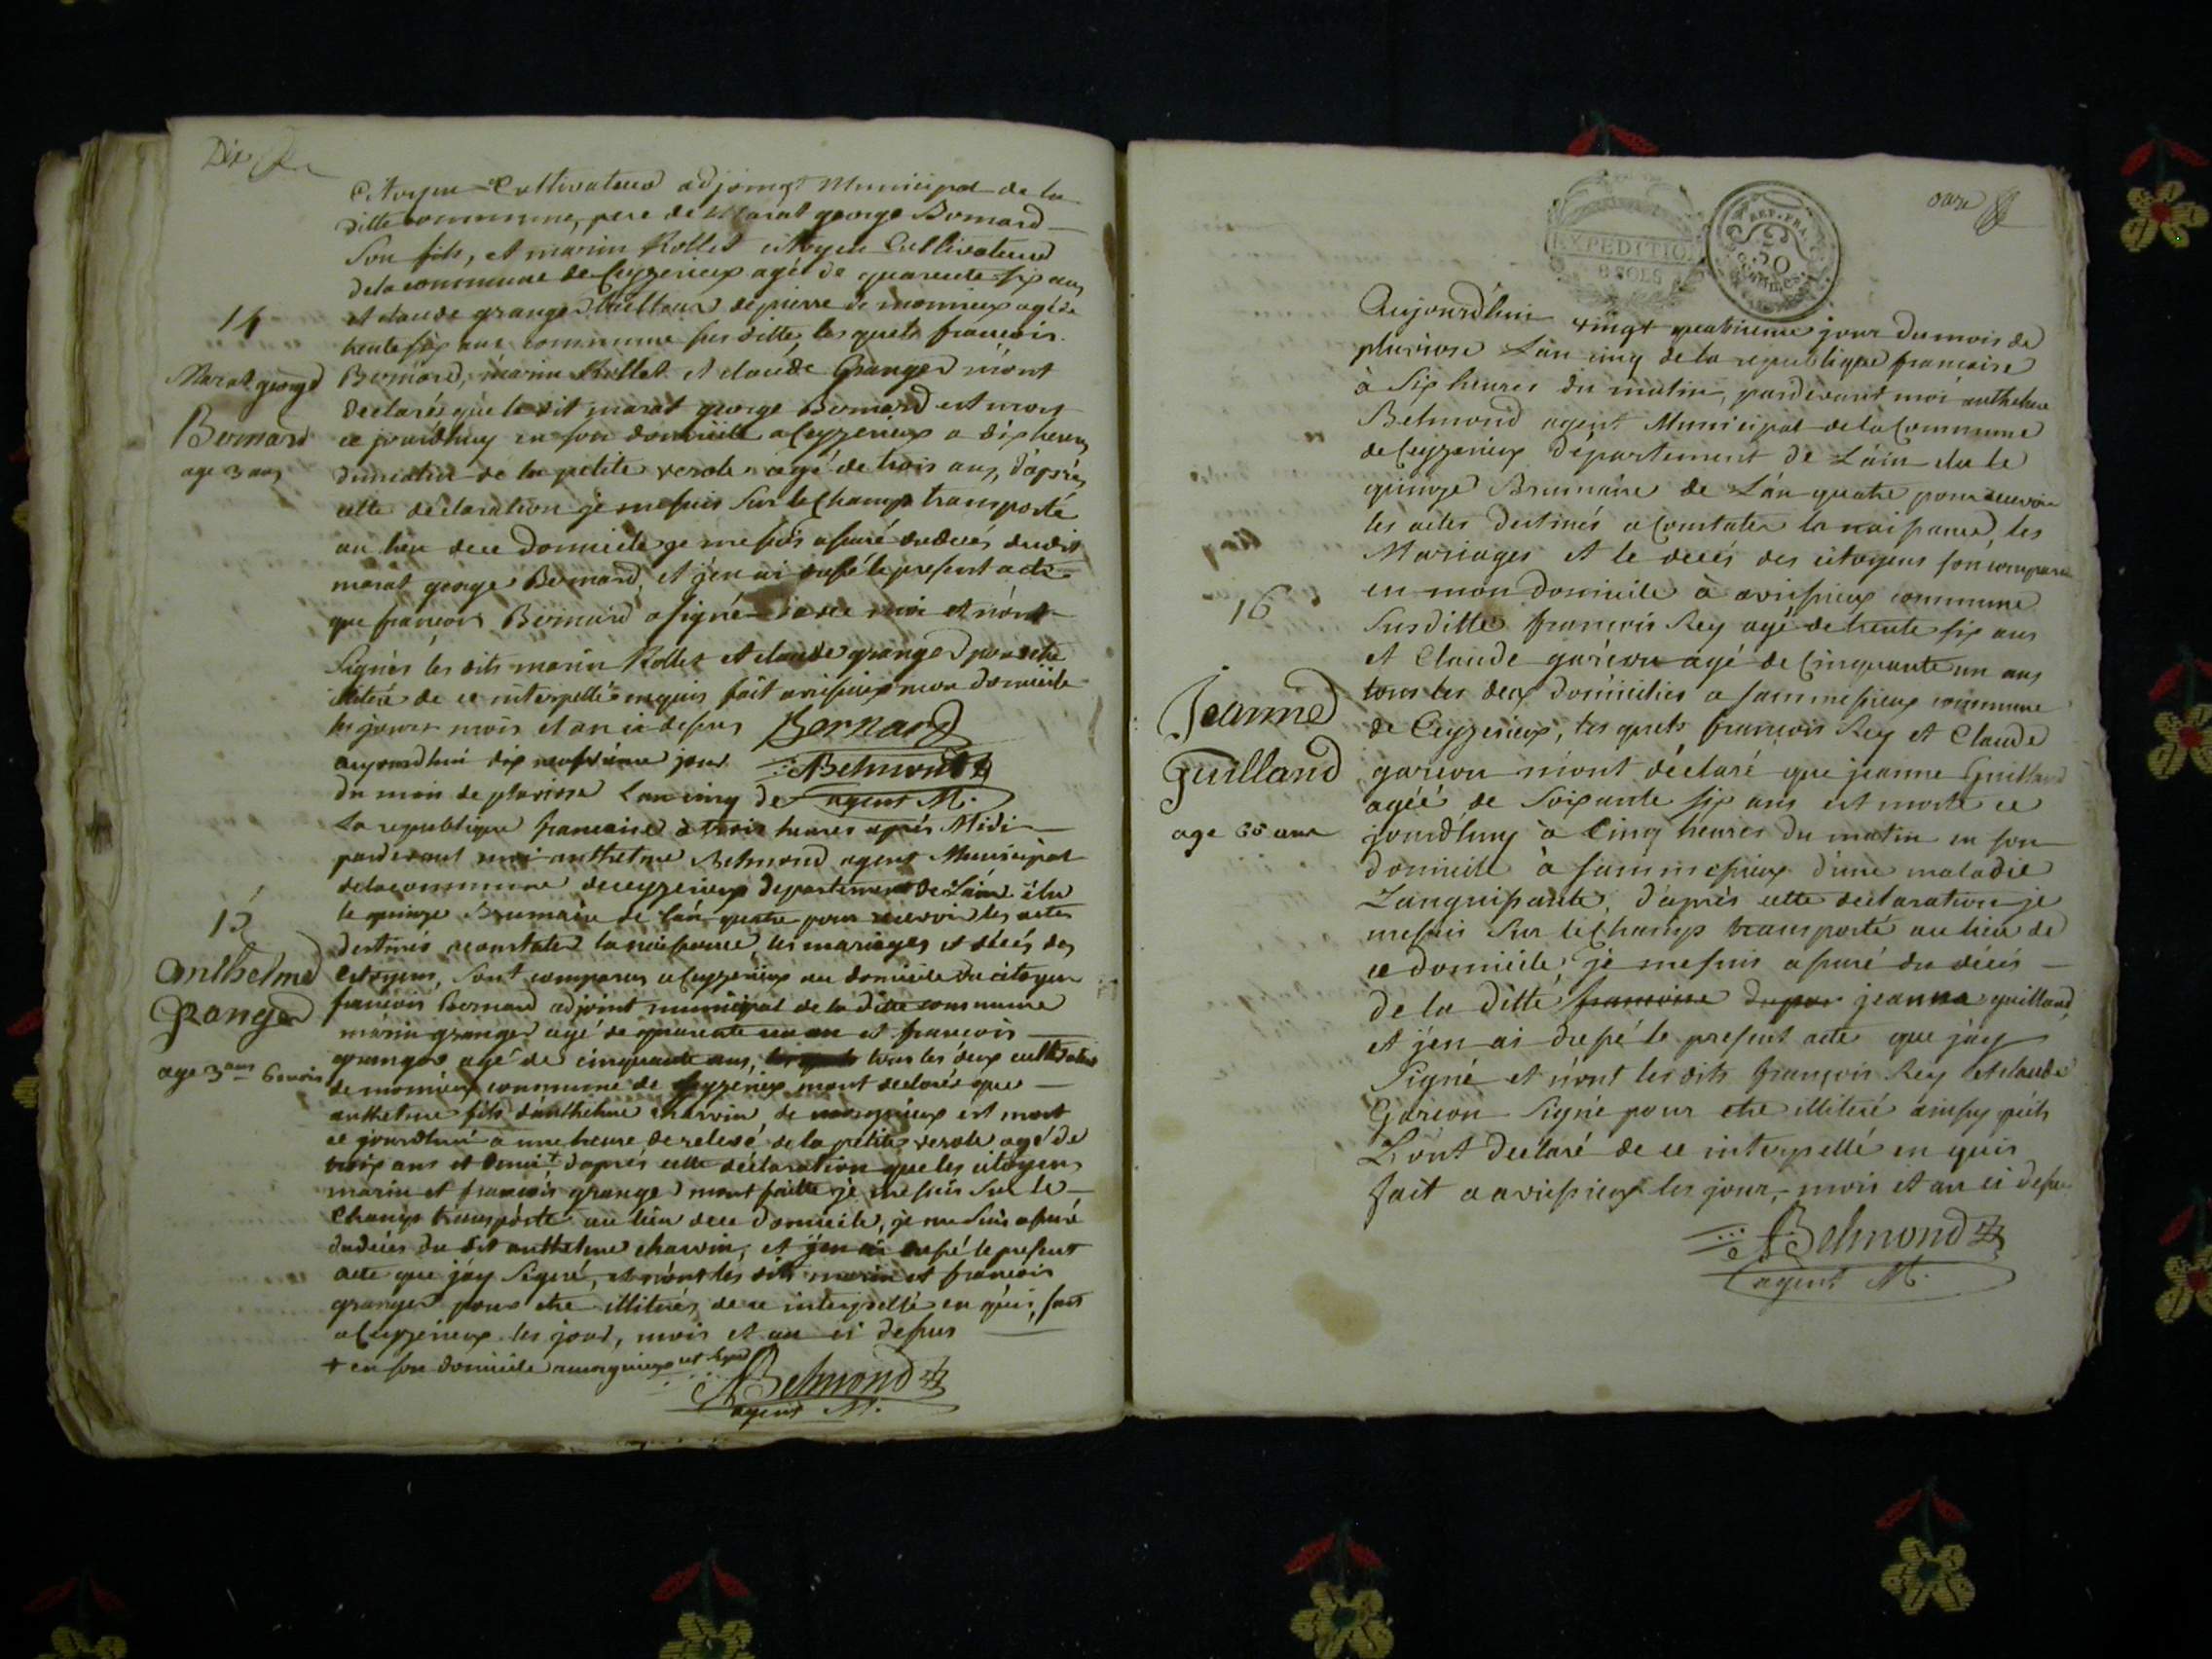 Dix
Citoyen Cultivateur adjoingt Municipal de la
ditte commune, pere de Marat george Bernard
Son fils, et marin Rollet citoyen Cultivateur
de la commune de Ceyzerieux agé de quarente six ans
et claude granger tailleur de pierre de momieux agé de
trente six ans commune susditte, les quels francois
14
Marat george
Bernard
age 3 ans
Bernard, marin Rollet et claude Granger m'ont
declarés que le dit marat george Bernard est mort
ce jourdhuy en son domicille a Ceyzerieux a dix heures
du matin de la petite verole agé de trois ans, d'après
cette declaration je me suis Sur le Champ transporté
au lieu de ce Domicile je me suis assuré du deces du dit
marat george Bernard, et j'en ai dressé le present acte
que francois Bernard a signé avec moi et n'ont
Signés les dits marin Rollet et claude granger pour etre
illiteré de ce interpellé enquis fait avrissieux mon domicile
les jours mois et an ci dessus Bernard
aujourdhui dix neufvieme jour ABelmond
du mois de pluviose l'an cinq de agent M.
La republique francaise à trois heures après Midi
pardevant moi anthelme Belmond agent Municipal
de la commune de ceyzerieux departement de L'ain élu
le quinze Brumaire de l'an quatre pour recevoir les actes
15
Anthelme
Granger
age 3 ans 6 mois
destinés a constater la naissance, les mariages et décés des
Citoyens, Sont comparus a Ceyzerieux au domicile du citoyen
francois Bernard adjoint municipal de la ditte commune
marin granger agé de quarente un an et francois
granger agé de cinquante ans, tous les deux cultivateur
de momieux commune de Ceyzerieux mont declarés que
anthelme fils d'anthelme charvin de est mort
ce jourdhui a une heure de relevé de la petite verole agé de
trois ans et demi + d'après cette déclaration que les citoyens
marin et francois granger mont faitte je me suis Sur le
Champ transporté au lieu de ce Domicile, je me suis assuré
du décés du dit anthelme charvin, et j'en ai dressé le present
acte que j'ay Signé, et n'ont les dits marin et francois
granger pour etre illiterés de ce interpellés en quis, fait
a Ceyzerieux les jour, mois et an ci dessus
+ en son domicile
ABelmond
agent M.
onze
EXPEDITION
8 SOLS
REP. FRA.
50
CENTIMES
Aujourd'hui vingt quatrieme jour du mois de
pluviose L'an cinq de la republique francaise
à Six heures du matin, pardevant moi anthelme
Belmond agent Municipal de la Commune
de Ceyzerieux Département de L'ain élu le
quinze Brumaire de L'an quatre pour recevoir
les actes destinés a Constater la naissance, les
Mariages et le décés des citoyens sont comparus
16
en mon domicile à avrissieux commune
Susditte francois Rey agé de trente six ans
et Claude garçon agé de Cinquante un ans
tous les deux domicilies a commune
Jeanne
Guilland
age 66 ans
de Ceyzerieux, les quels françois Rey et Claude
garçon m'ont déclaré que jeanne Guilland
agéé de Soixante six ans est morte ce
jourd'huy à Cinq heures du matin en son
domicile à d'une maladie
Languissante, d'après cette declaration je
me suis Sur le Champ transporté au lieu de
ce domicile, je me suis assuré du décés
de la ditte francoise jeanne guilland
et j'en ai dressé le present acte que j'ay
Signé et n'ont les dits françois Rey et claude
Garçon Signé pour etre illiteré ainsy qu'ils
L'ont declaré de ce interpellé en quis
fait a avrissieux les jour, mois et an ci dessus
ABelmond
agent M.